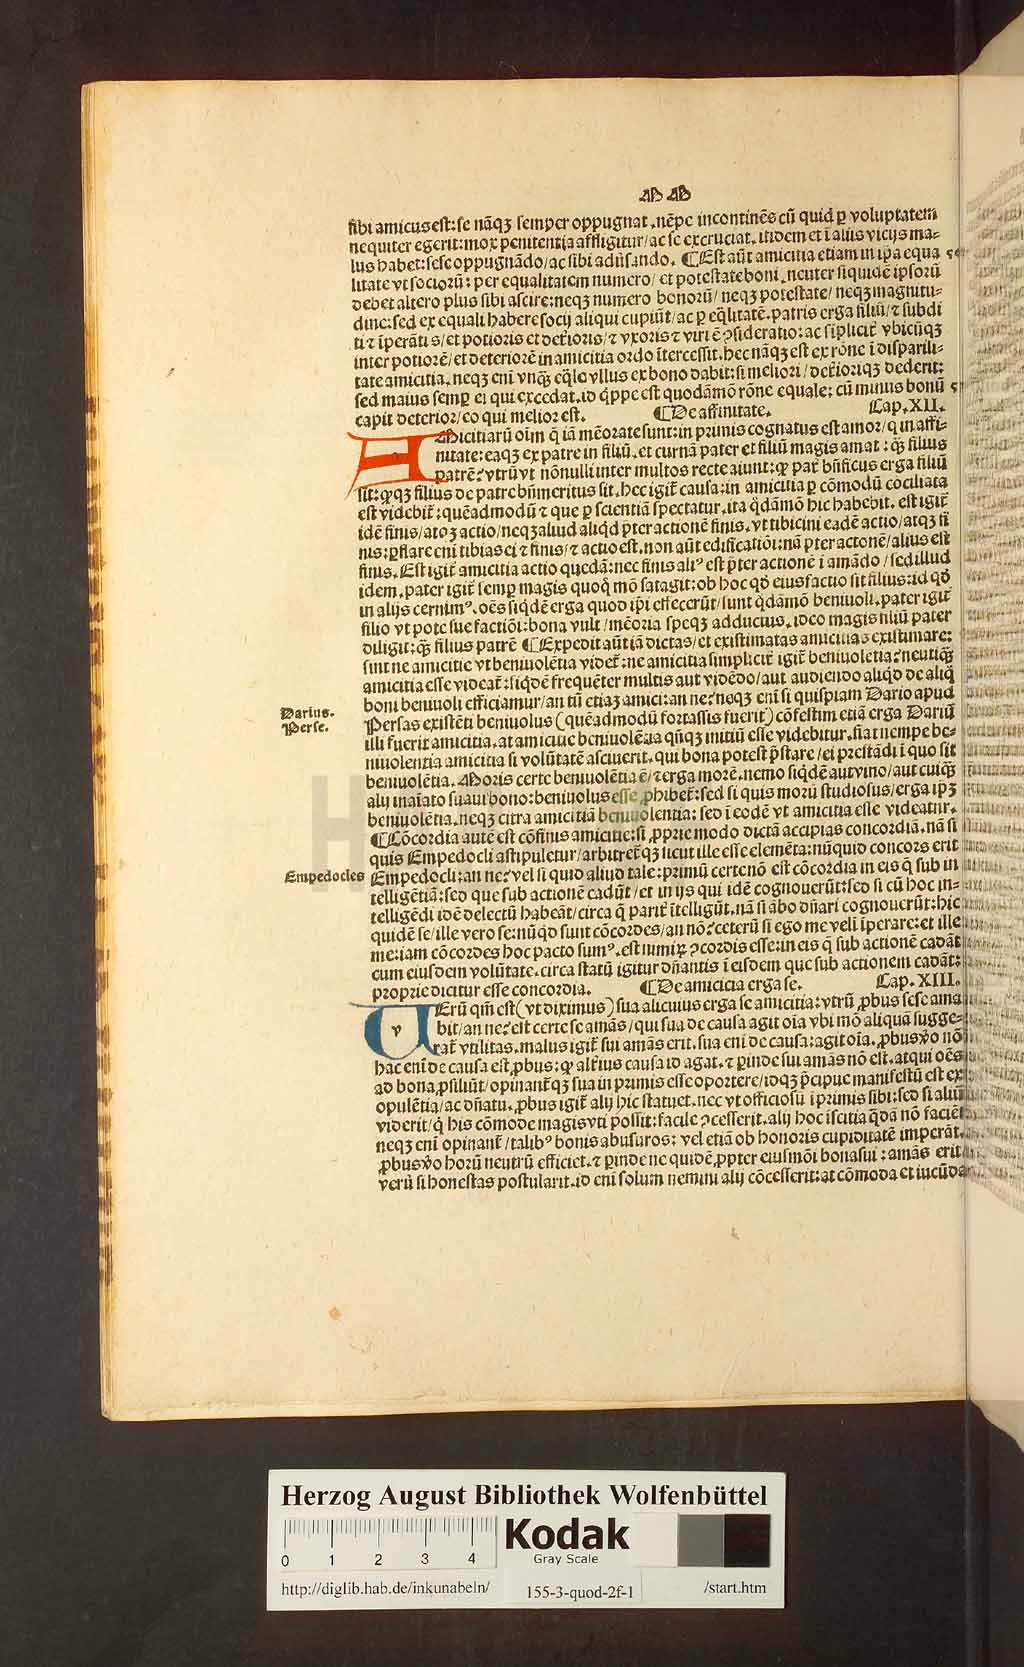 M M
sibi amicus est: se nāqꝫ semper oppugnat. nēpe incontinēs cū quid ꝑ voluptatem
nequiter egerit: mox penitentia affligitur/ ac se excruciat. itidem et ī alijs vicijs ma-
lus habet: sese oppugnādo/ ac sibi adūsando. ¶ Est aūt amicitia etiam in ip̄a equa
litate vt sociorū: per equalitatem numero/ et potestate boni. neuter siquidē ipsorū
debet altero plus sibi ascire: neqꝫ numero bonorū/ neqꝫ potestate/ neqꝫ magnitu-
dine: sed ex equali habere socij aliqui cupiūt/ ac ꝑ eq̄litatē. patris erga filiū/ ⁊ subdi
ti ⁊ īperātis/ et potioris et det̄ioris/ ⁊ vxoris ⁊ viri ē ꝯsideratio: ac sīplicit̄ vbicūqꝫ
inter potiorē/ et deteriorē in amicitia ordo ītercessit. hec nāqꝫ est ex rōne ī dispārili-
tate amicitia. neqꝫ enī vnq̄ꝫ eq̄le vllus ex bono dabit: si meliori/ det̄ioriqꝫ dederit:
sed maius semꝑ ei qui excedat. id q̄ppe est quodāmō rōne equale: cū minus bonū
capit deterior/ eo qui melior est. ¶ De affinitate. Cap. XII.
AMicitiarū oīm q̄ iā mēorate sunt: in primis cognatus est amor/ q̄ in affi-
nitate: eaqꝫ ex patre in filiū. et cur nā pater et filiū magis amat: q̄ꝫ filius
patrē? vtrū vt nōnulli inter multos recte aiunt: ꝙ pat̄ bn̄ficus erga filiū
sit: ꝙqꝫ filius de patre bn̄meritus sit. hec igit̄ causa: in amicitia ꝑ cōmodū cōciliata
est videbit̄: quēadmodū ⁊ que ꝑ scientiā spectatur. ita q̄dāmō hic habebit. est igit̄
idē finis/ atqꝫ actio/ neqꝫ aliud aliqd̄ p̄ter actionē finis. vt tibicini eadē actio/ atqꝫ fi
nis: ꝑflare enī tibias ei ⁊ finis/ ⁊ actio est. non aūt edificatiōi: nā p̄ter actionē/ alius est
finis. Est igit̄ amicitia actio quedā: nec finis aliꝰ est p̄ter actionē ī amādo/ sed illud
idem. pater igit̄ semꝑ magis quoq̄ mō satagit: ob hoc qd̄ eius factio sit filius: id qd̄
in alijs cernimꝰ. oēs siqdē erga quod ip̄i effecerūt/ sunt q̄dāmō beniuoli. pater igit̄
filio vt pote sue factiōi: bona vult/ mēoria speqꝫ adductus. ideo magis filiū pater
diligit: q̄ꝫ filius patrē ¶ Expedit aūt iā dictas/ et existimatas amicitias existimare:
sint ne amicitie vt beniuolētia videt̄: ne amicitia simplicit̄ igit̄ beniuolētia? neutiq̄ꝫ
amicitia esse videat̄: siqdē frequēter multis aut vidēdo/ aut audiendo aliqd̄ de aliq̄
boni beniuoli efficiamur/ an tū etiaꝫ amici: an ne? neqꝫ enī si quispiam Dario apud
Darius.
Perse.
Persas existēti beniuolus (quēadmodū fortassis fuerit) cōfestim etiā erga Dariū
illi fuerit amicitia. at amicitie beniuolētia qn̄qꝫ initiū esse videbitur. fiat nempe be-
niuolentia amicitia si volūtatē asciuerit. qui bona potest p̄stare/ ei prestādi ī quo sit
beniuolētia. Moris certe beniuolētia ē/ ⁊ erga morē. nemo siqdē aut vino/ aut cuiq̄ꝫ
alij inaīato suaui bono: beniuolus esse ꝓhibet̄: sed si quis morū studiosus/ erga ip̄ꝫ
beniuolētia. neqꝫ citra amicitiā beniuolentia: sed ī eodē vt amicitia esse videatur.
¶ Cōcordia autē est cōfinis amicitie: si ꝓprie modo dictā accipias concordiā. nā si
quis Empedocli astipuletur/ arbitret̄qꝫ sicut ille esse elemēta: nūquid concors erit
Empedocles
Empedocli: an ne? vel si quid aliud tale: primū certe nō est cōcordia in eis q̄ sub in
telligētiā: sed que sub actionē cadūt/ et in ijs qui idē cognouerūt: sed si cū hoc in-
telligēdi idē delectū habeāt/ circa q̄ parit̄ ītelligūt. nā si ābo dn̄ari cognouerūt: hic
quidē se/ ille vero se: nūqd̄ sunt cōcordes/ an nō? ceterū si ego me velī īperare: et ille
me: iam cōcordes hoc pacto sumꝰ. est nimiꝝ ꝯcordis esse: in eis q̄ sub actionē cadāt
cum eiusdem volūtate. circa statū igitur dn̄antis ī eisdem que sub actionem cadāt:
proprie dicitur esse concordia. ¶ De amicicia erga se. Cap. XIII.
v
UErū qm̄ est (vt diximus) sua alicuius erga se amicitia: vtrū ꝓbus sese ama
bit/ an ne? est certe se amās/ qui sua de causa agit oīa vbi mō aliqua sugge-
rat̄ vtilitas. malus igit̄ sui amās erit. sua enī de causa: agit oīa. ꝓbus v̄o nō
hac enī de causa est ꝓbus: ꝙ alt̄ius causa id agat. ⁊ ꝑinde sui amās nō est. atqui oēs
ad bona ꝓsiliūt/ opinant̄qꝫ sua in primis esse oportere/ idqꝫ p̄cipue manifestū est ex
opulētia/ ac dn̄atu. ꝓbus igit̄ alij hic statuet. nec vt officiosū īprimis sibi: sed si aliū
viderit/ q̄ his cōmode magis vti possit: facile ꝯcesserit. alij hoc īscitia q̄dā nō faciēt
neqꝫ enī opinant̄/ talibꝰ bonis abusuros: vel etiā ob honoris cupiditatē imperāt.
ꝓbus v̄o horū neutrū efficiet. ⁊ ꝑinde ne quidē ꝓpter eiusmōi bona sui: amās erit
verū si honestas postularit. id enī solum nemini alij cōcesserit: at cōmoda et iucūda
Herzog August Bibliothek Wolfenbüttel
0 1 2 3 4
Kodak
Gray Scale
http://diglib.hab.de/inkunabeln/ 155-3-quod-2f-1 /start.htm